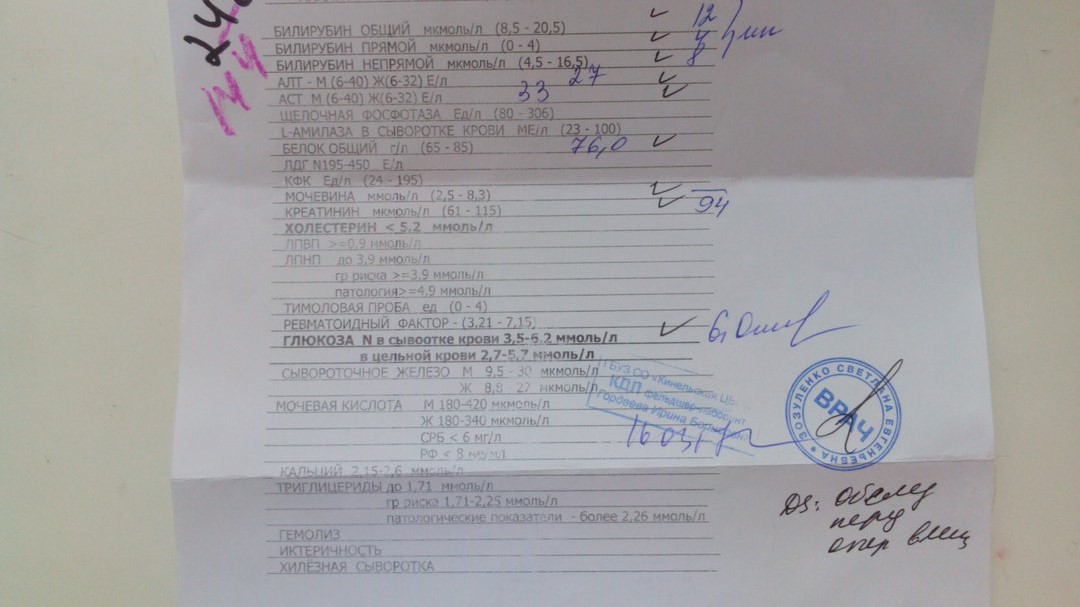 БИЛИРУБИН ОБЩИЙ мкмоль/л (8,5 - 20,5) 12
БИЛИРУБИН ПРЯМОЙ мкмоль/л (0 - 4) 4
БИЛИРУБИН НЕПРЯМОЙ мкмоль/л (4,5 - 16,5) 8
АЛТ - М (6-40) Ж(6-32) Е/л 27
АСТ М (6-40) Ж(6-32) Е/л 33
ЩЕЛОЧНАЯ ФОСФОТАЗА Ед/л (80 - 306)
L-АМИЛАЗА В СЫВОРОТКЕ КРОВИ МЕ/л (23 - 100)
БЕЛОК ОБЩИЙ г/л (65 - 85) 76,0
ЛДГ N195-450 Е/л
КФК Ед/л (24 - 195)
МОЧЕВИНА ммоль/л (2,5 - 8,3)
КРЕАТИНИН мкмоль/л (61 - 115) 94
ХОЛЕСТЕРИН < 5,2 ммоль/л
ЛПВП >=0,9 ммоль/л
ЛПНП до 3,9 ммоль/л
гр риска >=3,9 ммоль/л
патология>=4,9 ммоль/л
ТИМОЛОВАЯ ПРОБА ед (0 - 4)
РЕВМАТОИДНЫЙ ФАКТОР - (3,21 - 7,15)
ГЛЮКОЗА N в сывоотке крови 3,5-6,2 ммоль/л 6,0
в цельной крови 2,7-5,7 ммоль/л
СЫВОРОТОЧНОЕ ЖЕЛЕЗО М 9,5 - 30 мкмоль/л
Ж 8,8 - 27 мкмоль/л
МОЧЕВАЯ КИСЛОТА М 180-420 мкмоль/л
Ж 180-340 мкмоль/л
СРБ < 6 мг/л
РФ < 8
КАЛЬЦИЙ 2,15-2,6 ммоль/л
ТРИГЛИЦЕРИДЫ до 1,71 ммоль/л
гр риска 1,71-2,25 ммоль/л
патологические показатели - более 2,26 ммоль/л
ГЕМОЛИЗ
ИКТЕРИЧНОСТЬ
ХИЛЁЗНАЯ СЫВОРОТКА
ГБУЗ СО «Кинельская
КДЛ фельдшер-лаборант
Гордеева Ирина
16 03
ЗОЗУЛЕНКО СВЕТЛАНА ЕВГЕНЬЕВНА
ВРАЧ
DS: